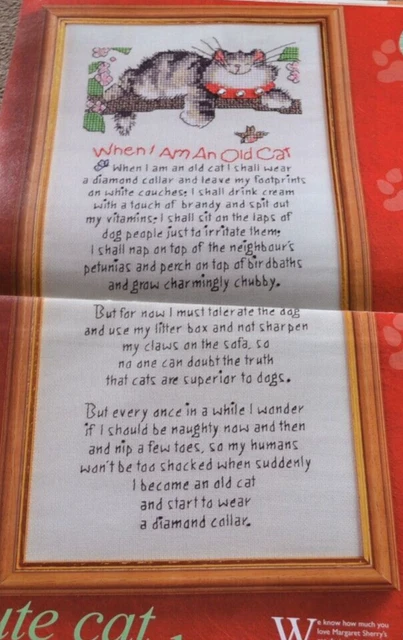 When I Am An Old Cat
When I am an old cat I shall wear
a diamond collar and leave my footprints
on white couches; I shall drink cream
with a touch of brandy and spit out
my vitamins; I shall sit on the laps of
dog people just to irritate them;
I shall nap on top of the neighbour's
petunias and perch on top of birdbaths
and grow charmingly chubby.
But for now I must tolerate the dog
and use my litter box and not sharpen
my claws on the sofa, so
no one can doubt the truth
that cats are superior to dogs.
But every once in a while I wonder
if I should be naughty now and then
and nip a few toes, so my humans
won't be too shocked when suddenly
I become an old cat
and start to wear
a diamond collar.
ute cat
We know how much you
love Margaret Sherry's